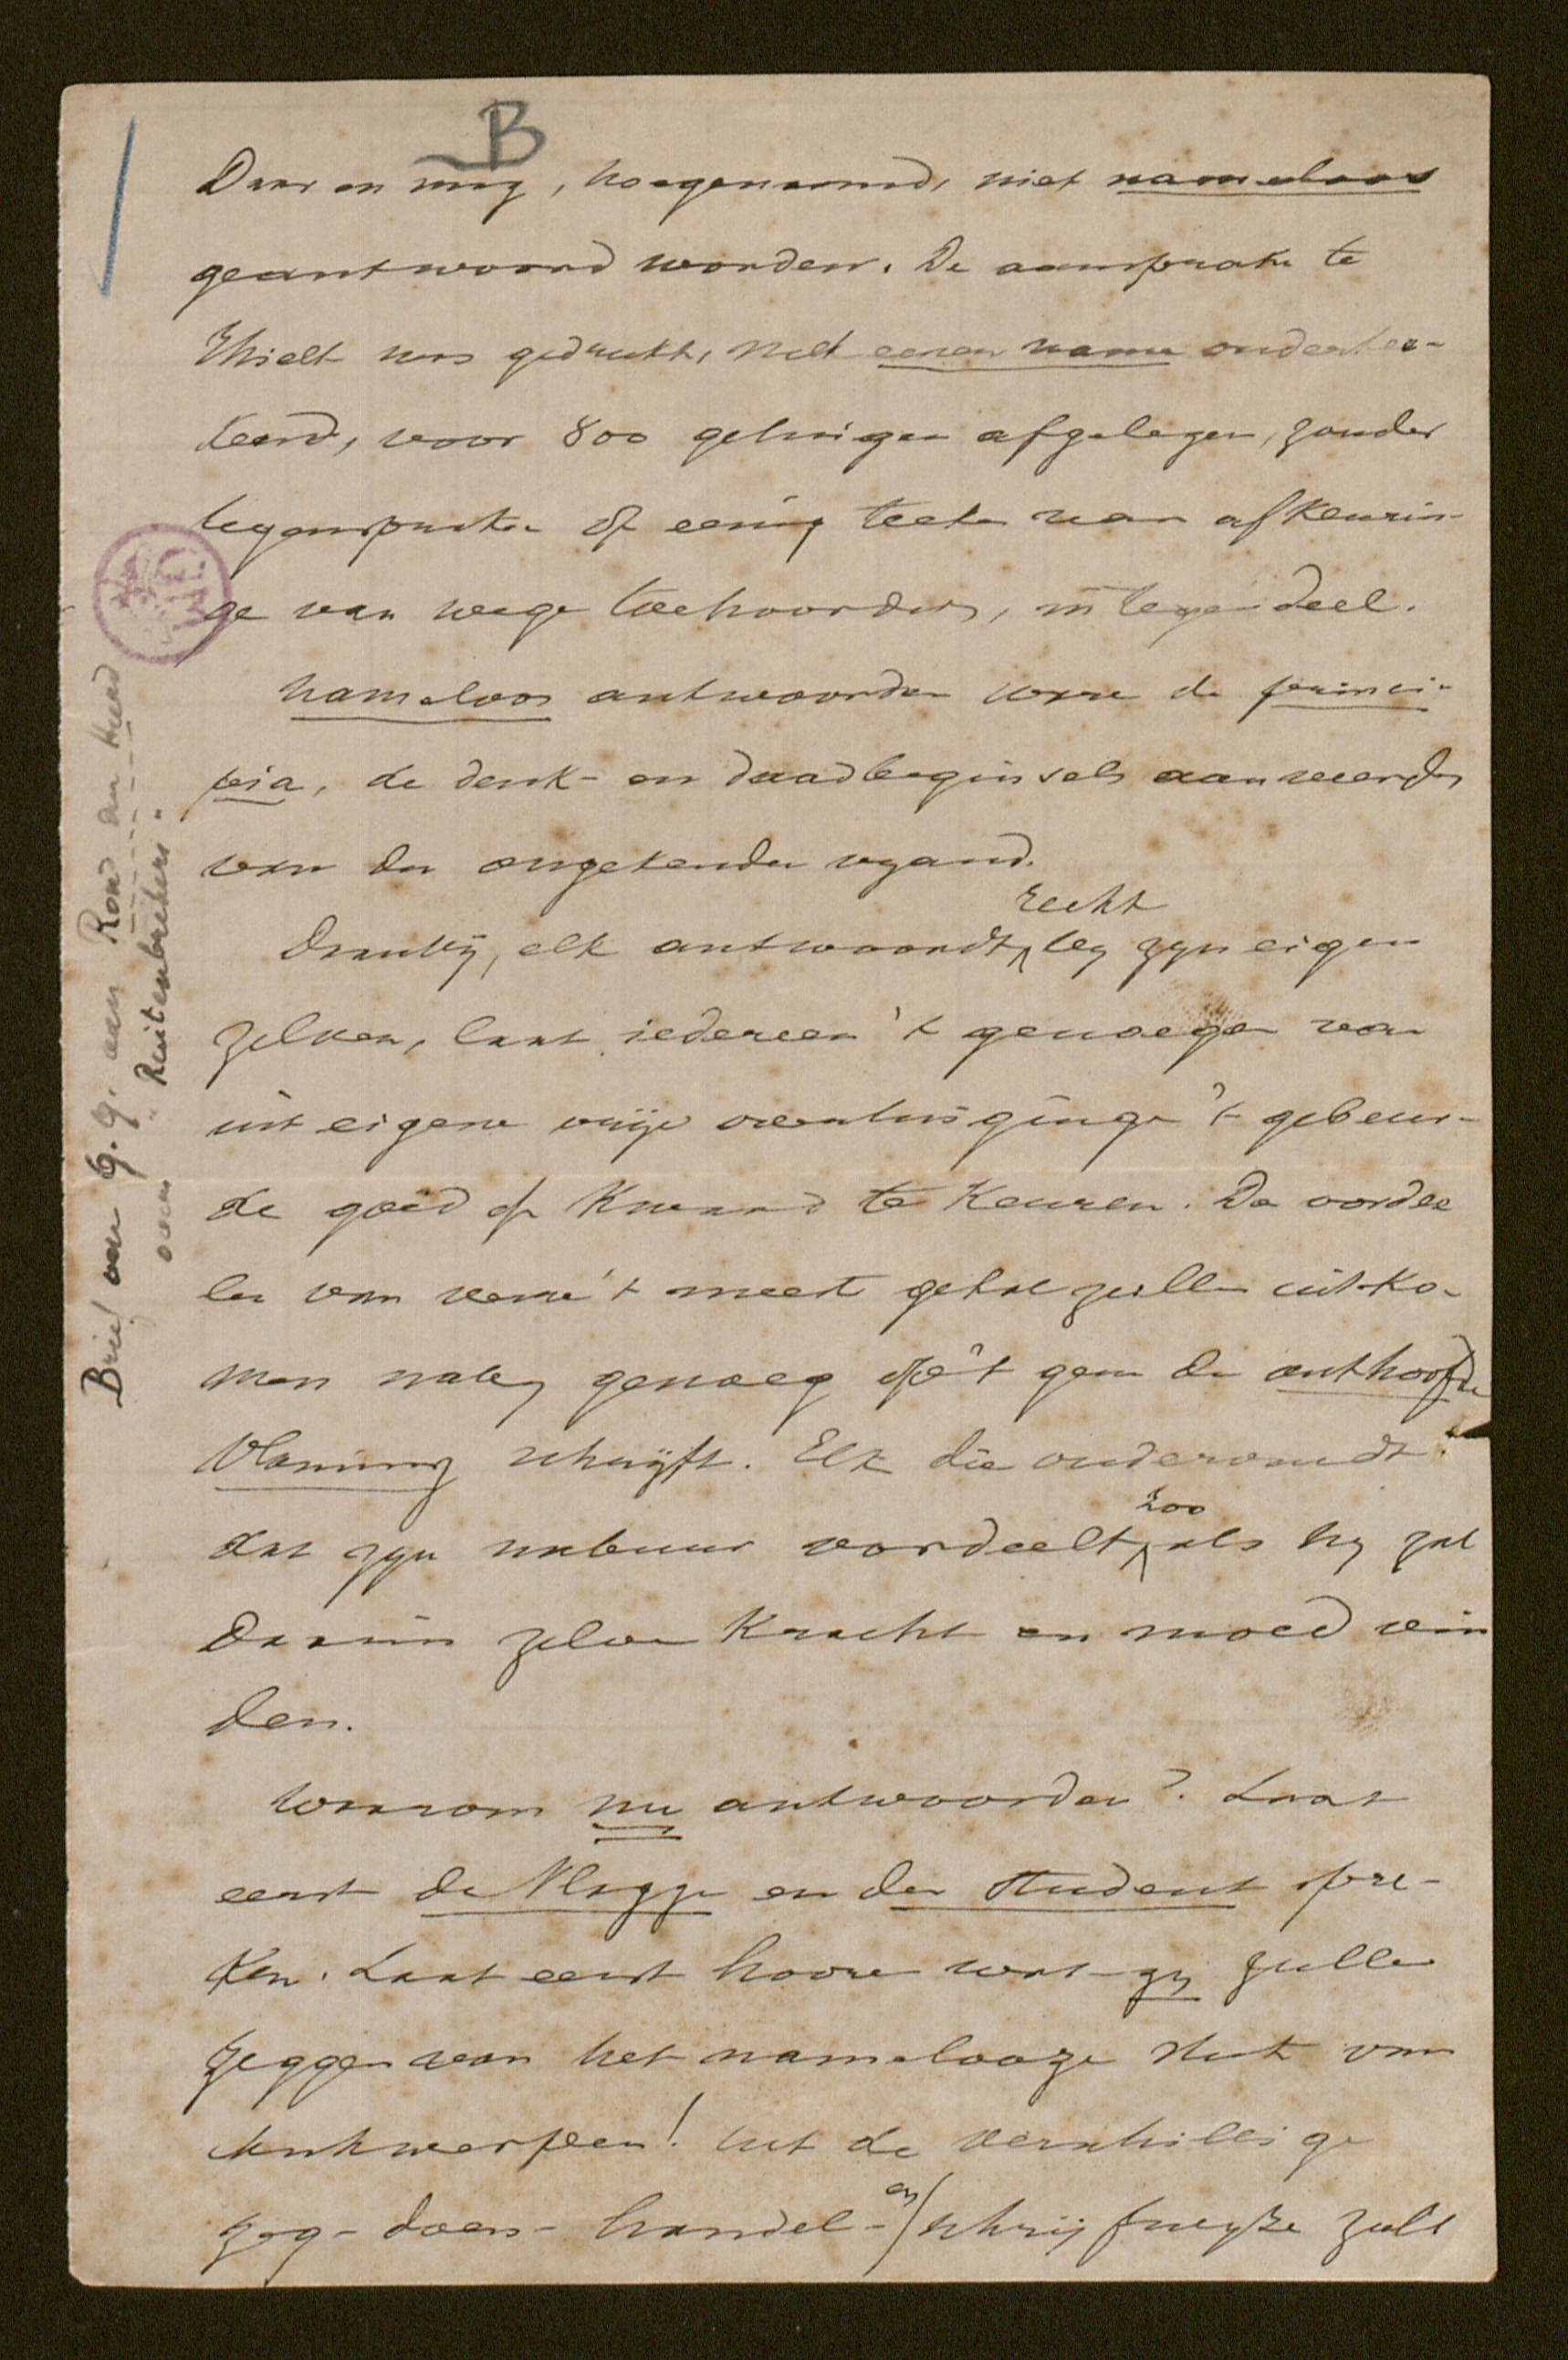 B
Daar en mag, hoegenaamd, niet nameloos
geantwoord worden. De aansprake te
Thielt was gedrukt, met eenen name ondertee-
kend, voor 800 getuigen afgelezen, zonder
tegenspreken of eenig teeken van afkeurin-
ge van wege toehoorders, in tegendeel.
Nameloos antwoorden ware de princi-
pia, de denk- en daadbeginsels aanveerden
van den ongekenden vyand.
Daarby, elk antwoordt recht by zyn eigen
zelven, laat iedereen 't genoegen van
uit eigene vrije overtuiginge 't gebeur-
de goed of kwaad te keuren. De oordee
len van verre 't meest getal zullen uitko-
men naby genoeg op 't gene de onthoofde
Vlaming schrijft. Elk die ondervindt
dat zyn nabuur oordeelt zoo als hy zal
daarin zelve kracht en moed vin
den.
Waarom nu antwoorden? Laat
eerst de Vlagge en den Student spre-
ken. Laat eerst hooren wat zy zullen
zeggen van het namelooze stuk van
Antwerpen! Uit de verschillige
zeg- doen- handel- en schrijfwyze zult
Brief van G.G. aan Rond den Heerd
over "Ruitenbrekers".